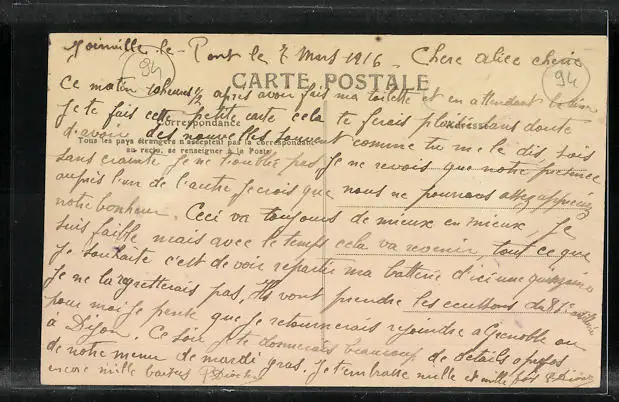 Joinville-le-Pont le 7 Mars 1916 - Chere alice cherie
94
94
CARTE POSTALE
Ce matin 10 heures 1/2 après avoir fais ma toilette et en attendant
Correspondance
Tous les pays étrangers n'acceptent pas la correspondance
au recto, se renseigner à la Poste
Je te fais cette petite carte cela te feras plaisir sans doute
d'avoir des nouvelles souvent comme tu me le dis, sois
sans crainte je ne t'oublie pas je ne revois que notre presence
auprès l'un de l'autre je crois que nous ne pourrons assez apprecier
notre bonheur. Ceci va toujours de mieux en mieux, Je
suis faible mais avec le temps cela va revenir, tout ce que
je souhaite c'est de voir repartir ma batterie d'ici une quinzaine
Je ne la regretterais pas, Ils vont prendre les ecussons du
pour moi je pense que je retournerais rejoindre a Grenoble ou
à Dijon. Ce soir je te donnerais beaucoup de details a propos
de notre menu de mardi gras. Je t'embrasse mille et mille fois
encore mille baisers